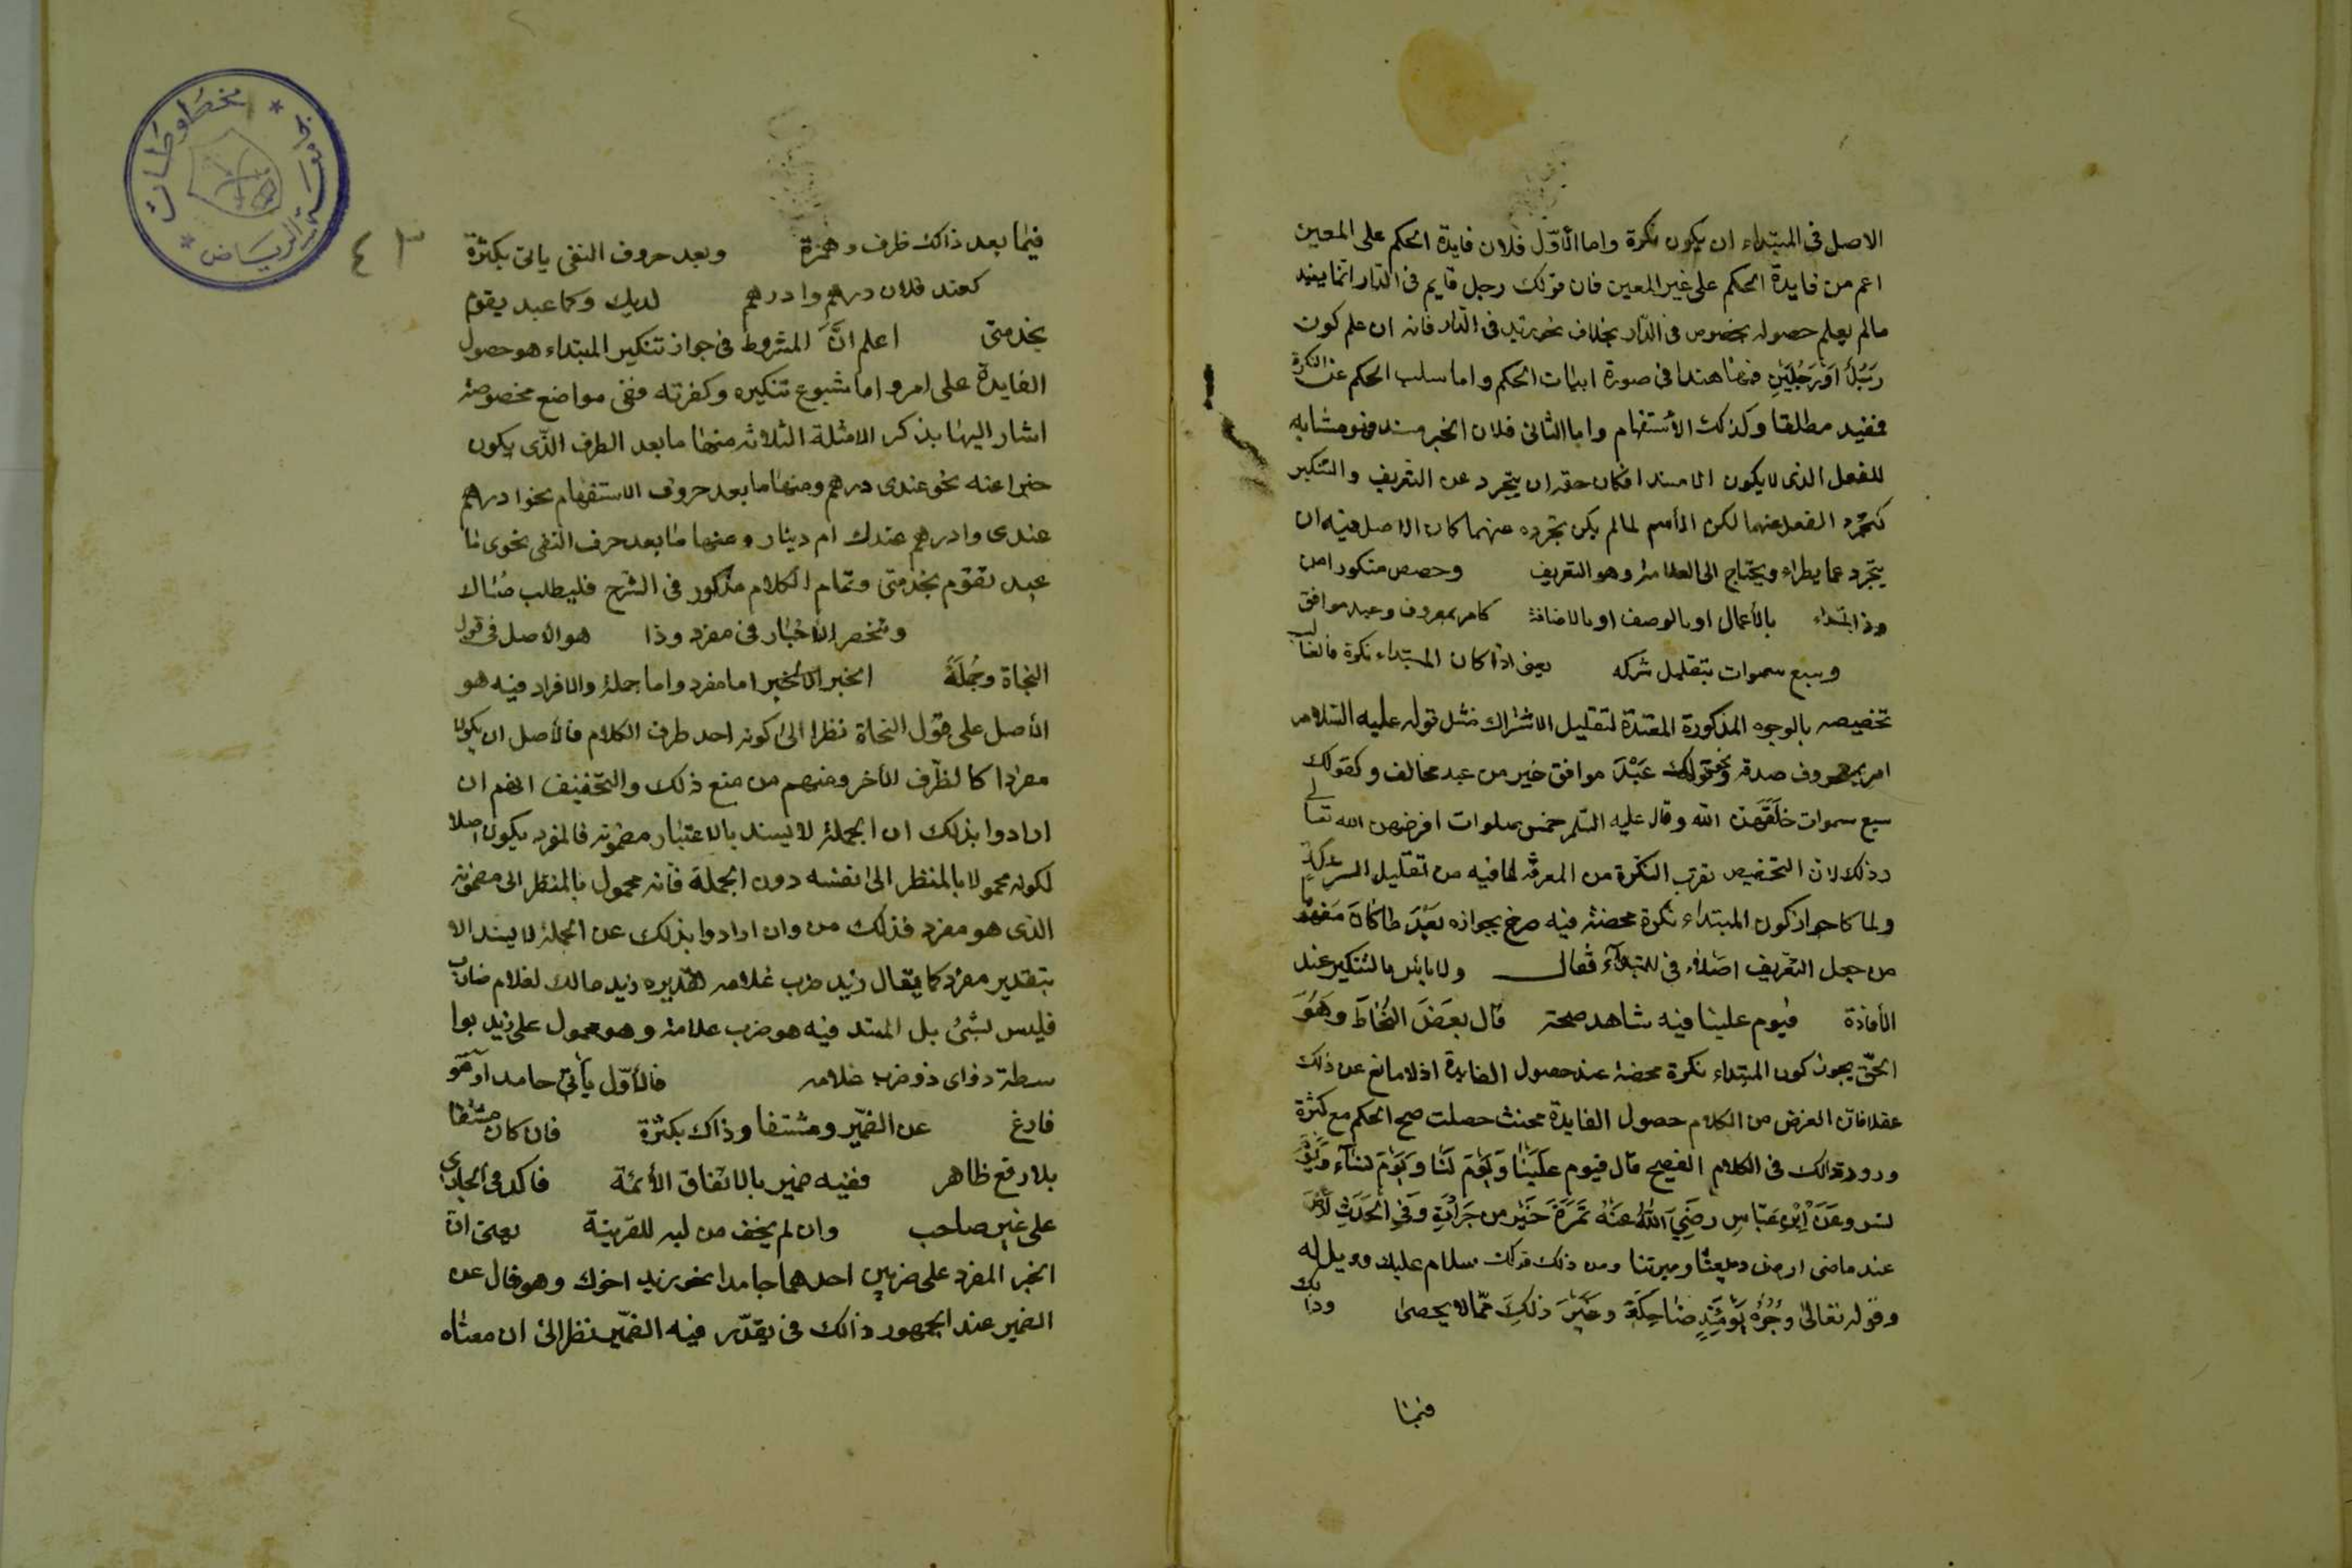 الاصل فى المبتداء ان يكون نكرة واما الأوّل فلان فايدة الحكم على المعين
اعم من فايدة الحكم على غير المعين فان قولك رجل قايم فى الدّار انما يفيد
مالم يعلم حصوله بخصوص فى الدّار بخلاف نحو زيد فى الدّار فانه ان علم كون
رَجُلُ اَوْ رَجُلَيْنِ فيها هذا فى صورة اثبات الحكم واما سلب الحكم عن النكرة
فمفيد مطلقا وكذلك الأستفهام واما الثانى فلان الخبر مسند فهو مشابه
للفعل الذى لا يكون الا مسندا فكان حقه ان يتجرد عن التعريف والتنكير
كتجرد الفعل عنهما لكن الأسم لما لم يكن تجرده عنهما كان الاصل فيه ان
يتجرد عما يطراء ويحتاج الى العلامة وهو التعريف وخصص منكورا من
وذا ابتداء بالأعمال او بالوصف او بالاضافة كامر بمعروف وعبد موافق
وسبع سموات بتقليل شركه يعنى اذا كان المبتداء نكرة فالغالب
تخصيصه بالوجوه المذكورة المفيدة لتقليل الاشتراك مثل قوله عليه السّلام
امر بمعروف صدقه ونحو قولك عَبْدَ موافق خير من عبد مخالف وكقولك
سبع سموات خلقهن الله وقال عليه السّلم خمس صلوات افرضهن الله تعالى
وذلك لان التخصيص يقرب النكرة من المعرفة لما فيه من تقليل الشركة
ولما كا جواز كون المبتداء نكرة محضة فيه صرح بجوازه بَعْدَ ما كان
من جعل التعريف اصلا فى المبتداء فقال ولا باس بالتنكير عند
الأفادة فيوم علينا فيه شاهد صحته قال بعض النُحَاة وهُوَ
الحقّ يجوز كون المبتداء نكرة محضة عند حصول الفايدة اذ لا مانع عن ذلك
عقلا فان الغرض من الكلام حصول الفايدة فحيث حصلت صح الحكم مع كثرة
ورود ذالك فى الكلام الفصيح قال فيوم عَلَيْنَا وَيَوْمَ لَنَا وَيَوْمَ نساء ويوم
نسر وعَنْ اِبْنِ عَبّاسِ رضِيَ اللّٰهُ عَنْهُ تَمْرَةَ خَيْرِ مِن جَرَادَةِ وَفى الْحَدِيث
عند ماضى ارض وميتنا ومن ذلك قولك سلام عليك وويل له
وقوله تعالى وُجُوْهُ يَوْمَئِذٍ ضاحِكَة وَغَيْرَ ذلِكَ مّما لا يحصى وذالك
فيما
٤٣
مخطوطات جامعة الرياض
فيما بعد ذاك ظرف وهمزة وبعد حروف النفى ياتى بكثرة
كعند فلان درهم وادرهم لديك وكما عبد يقوم
بخدمتى اعلم انَّ المشروط فى جواز تنكير المبتداء هو حصول
الفايدة على امر واما شيوع تنكيره وكثرته ففى مواضع مخصوصة
اشار اليها بذكر الامثلة الثلاثه منها ما بعد الظرف الذّى يكون
خبرا عنه نحو عندى درهم ومنها ما بعد حروف الاستفهام نحو ادرهم
عندى وادرهم عندك ام دينار ومنها ما بعد حرف النفى نحوى ما
عبد تقوم بخدمتى وتمام الكلام مذكور فى الشرح فليطلب هناك
وتنحصر الأخبار فى مفرد وذا هو الأصل فى قول
النحاة وجُملَةَ الخبر اما مفرد واما جملة والافراد فيه هو
الأصل على قول النحاة نظرا الى كونه احد طرف الكلام فالأصل ان يكون
مفردا كالطرف الأخر ومنهم من منع ذلك والتحقيق انهم ان
ارادوا بذلك ان الجملة لا يسند بالاعتبار مضمونه فالمفرد يكون اصلا
لكونه محمولا بالنظر الى نفسه دون الجملة فانه محمول بالنظر الى مضمونه
الذى هو مفرد فذلك من وان ارادوا بذلك عن الجملة لا يسند الا
بتقدير مفرد كما يقال زيد ضرب غلامه تقديره زيد مالك لغلام ضارب
فليس بشئ بل المسند فيه هو ضرب غلامه وهو محمول على زيد بوا
سطة ذواى ذو ضرب غلامه فالأوّل يأتى جامد اوهو
فارغ عن الضمّير ومشتقا وذاك بكثرة فان كان مشتقا
بلا رفع ظاهر ففيه ضمير بالاتفاق الأئمة فاكد فى الجارى
على غير صاحب وان لم يخف من لبه للقرينة يعنى ان
الخبر المفرد على ضربين احدهما جامدا نحو زيد اخوك وهو خال عن
الضمير عند الجمهور ذالك فى يقدّر فيه الضمّير نظر الى ان معناه